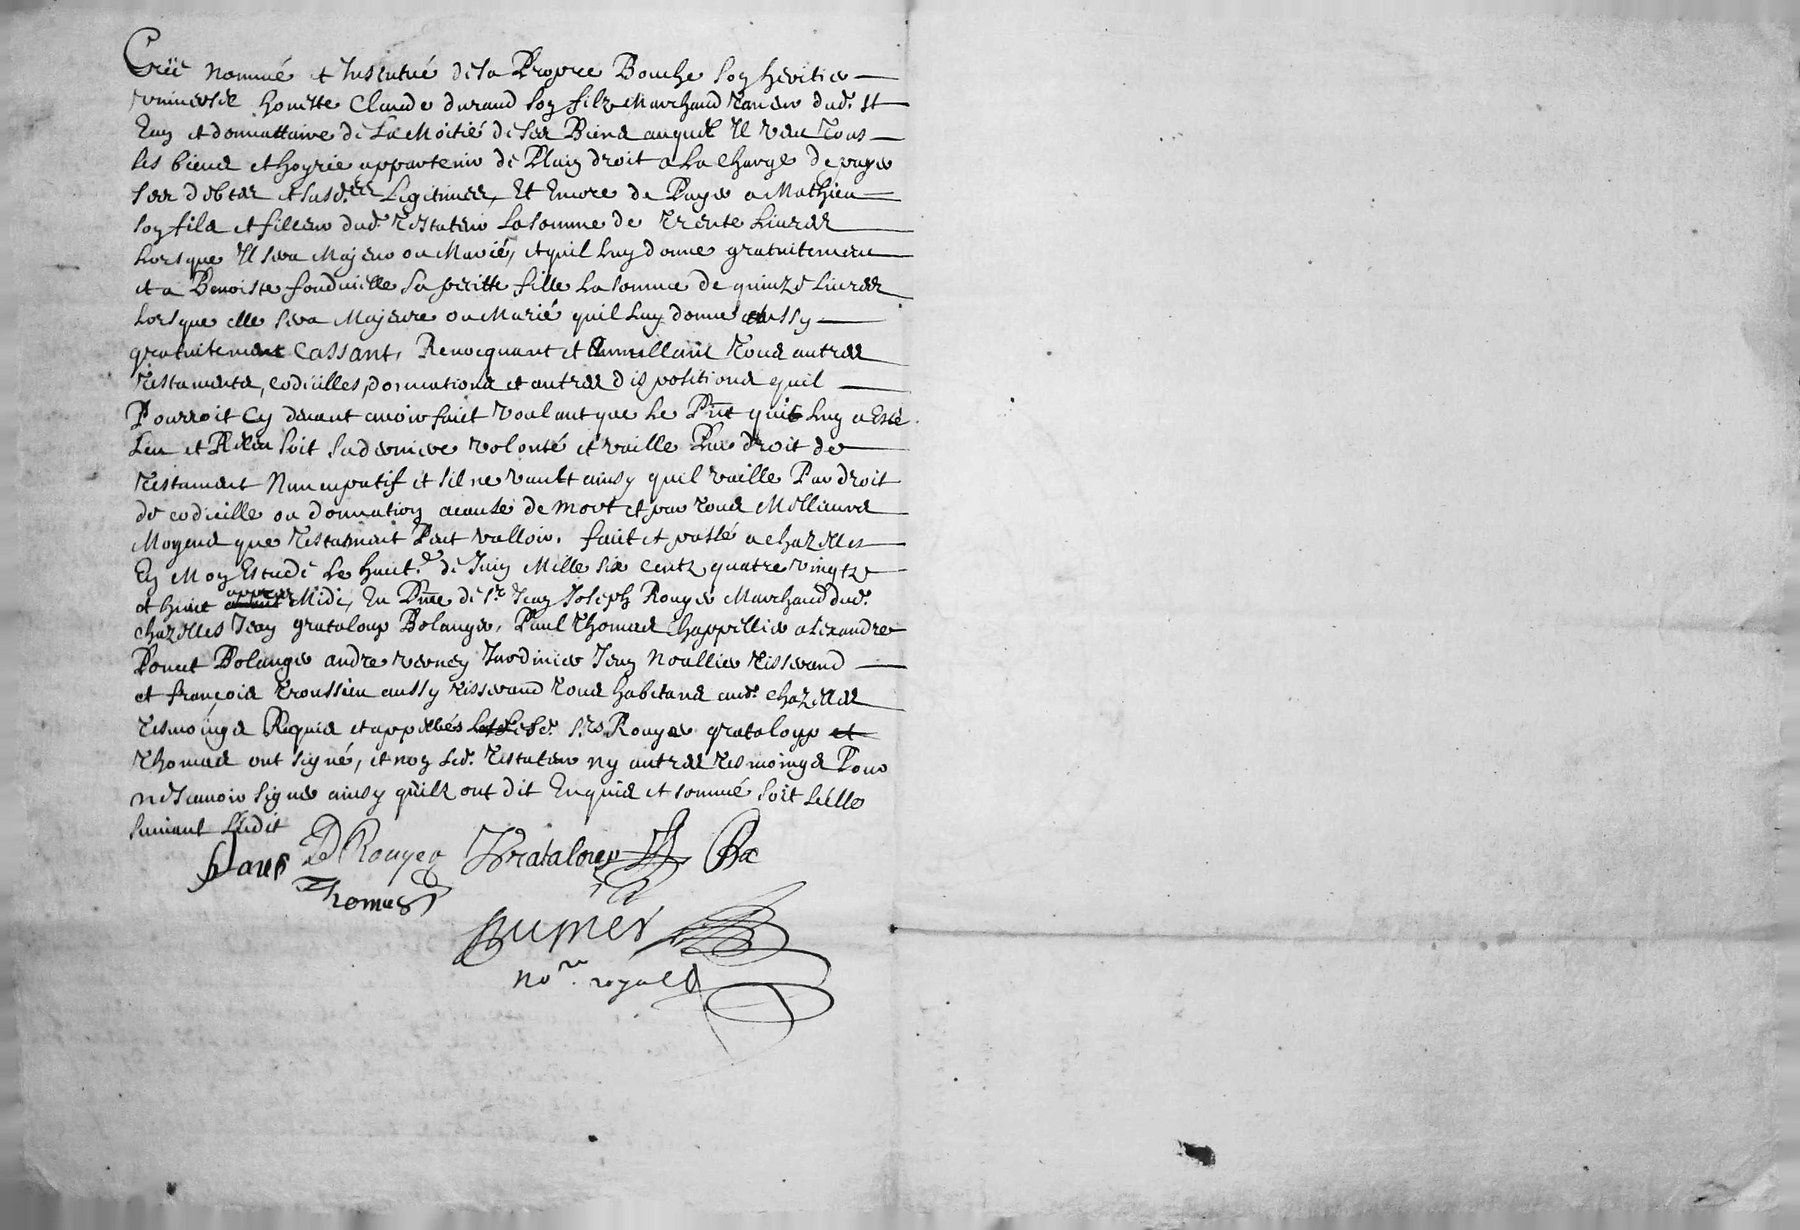 Créé nommé et Institué de sa Propre Bouche son heritier
universel honeste Claude durand son filz Marchand Taneur dud. st
et donnattaire de La Moitié de ses Biens auquel Il veut tous
les biens et hoyrie appartenir de Plain droit a La charge de payer
ses debtes et susd. Legitimes, Et Encore de Payer a Mathieu
son fils et filleul dud. Testateur La somme de Trente Livres
Lorsque Il sera Majeur ou Marié, et quil Luy donne gratuitement
et a Benoiste sa petitte fille La somme de quinze Livres
Lorsque elle sera Majeure ou Marié quil Luy donne aussy
gratuitement Cassant, Revocquant et Annullant Tous autres
Testaments, codicilles, donnations et autres dispositions quil
Pourroit Cy devant avoir fait voulant que Le Pnt quil Luy a Esté
Leu et Releu soit sa derniere volonté et vaille Par droit de
Testament Nuncupatif et sil ne vault ainsy quil vaille Par droit
de codicille ou donnation acause de mort et par Tous Meillieurs
Moyens que Testament Peut valloir. fait et passé a chazelles
En Mon Estude Le huit.e de Juin Mille six centz quatre vingtz
et huit appres Midi, En Pnce de Sr Jean Joseph Rouger Marchand dud.
chazelles Jean grataloup Bolanger, Paul Thomas Chappellier alexandre
Poncet Bolanger andre verney Jardinier Jean Noallier Tisserand
et françois Troussieu aussy Tisserand Tous habitans aud. chazelles
Tesmoings Requis et appellés Lesd. Srs Rouger grataloup et
Thomas ont signé, et non Led. Testateur ny autres Tesmoings Pour
ne scavoir signer ainsy quilz ont dit Enquis et sommé soit scellé
suivant L'edit
Rouger Grataloup
Thomas
nore. royal